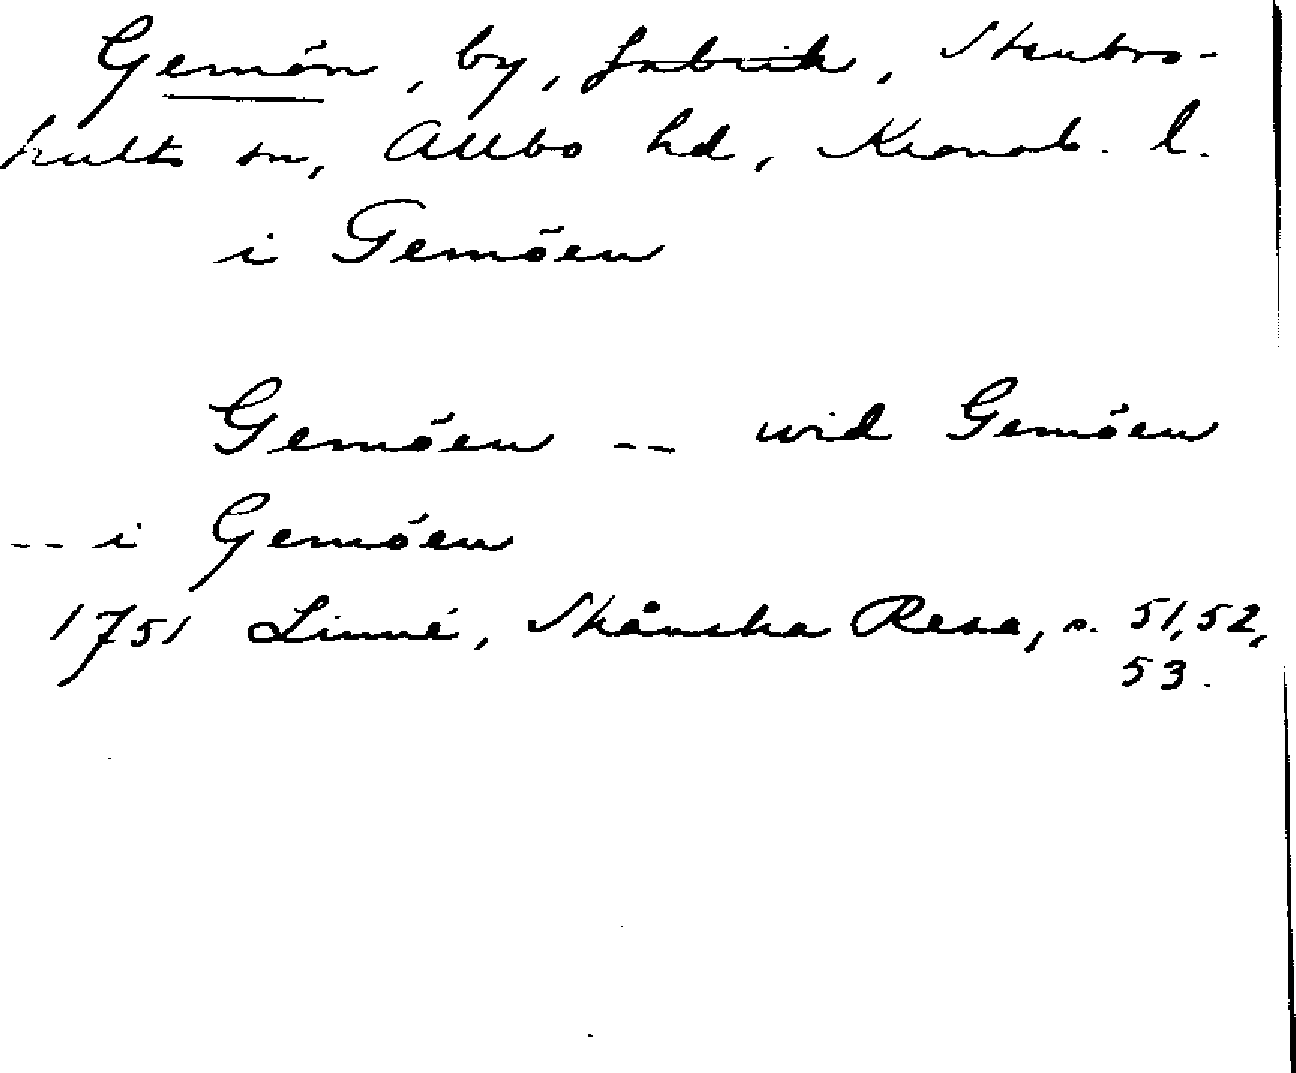 Gemön, by, fabrik, Skatrs-
hults sn, Allbo hd, Kronob. l.
i Gemöen
Gemöen -- wid Gemöen
-- i Gemöen
1751 Linné, Skånska Resa, s. 51, 52,
53.